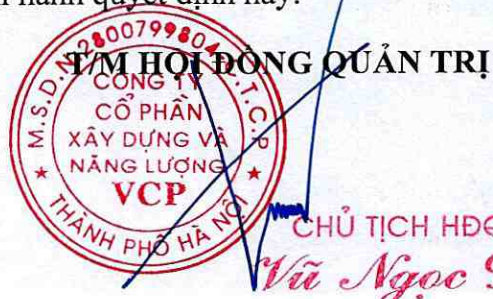 hành quyết định này.
T/M HỘI ĐỒNG QUẢN TRỊ
M.S.D.N:2800799804.C.T.C.P
CÔNG TY
CỔ PHẦN
XÂY DỰNG VÀ
NĂNG LƯỢNG
VCP
THÀNH PHỐ HÀ NỘI
CHỦ TỊCH HĐQ
Vũ Ngọc